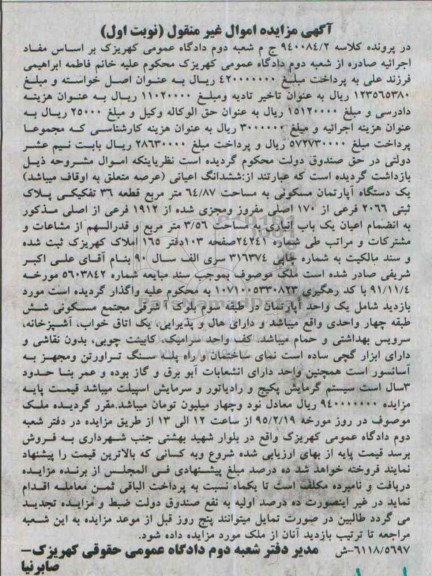 آگهی مزایده اموال غیر منقول (نوبت اول)
در پرونده کلاسه ۹۴۰۰۸۴/۲ ج م شعبه دوم دادگاه عمومی کهریزک بر اساس مفاد
اجرائیه صادره از شعبه دوم دادگاه عمومی کهریزک محکوم علیه خانم فاطمه ابراهیمی
فرزند علی به پرداخت مبلغ ۴۲۰۰۰۰۰۰۰ ریال به عنوان اصل خواسته و مبلغ
۱۲۳۵۶۵۳۸۰ ریال به عنوان تاخیر تادیه ومبلغ ۱۱۰۲۰۰۰۰ ریال به عنوان هزینه
دادرسی و مبلغ ۱۵۱۲۰۰۰۰ ریال به عنوان حق الوکاله وکیل و مبلغ ۲۵۰۰۰ ریال به
عنوان هزینه اجرائیه و مبلغ ۳۰۰۰۰۰۰ ریال به عنوان هزینه کارشناسی که مجموعا
پرداخت مبلغ ۵۷۲۷۳۰۰۰۰ ریال و پرداخت مبلغ ۲۸۶۳۰۰۰۰ ریال بابت نیم عشر
دولتی در حق صندوق دولت محکوم گردیده است نظرباینکه اموال مشروحه ذیل
بازداشت گردیده است که عبارتند از:ششدانگ اعیانی (عرصه متعلق به اوقاف میباشد)
یک دستگاه آپارتمان مسکونی به مساحت ۶۴/۸۷ متر مربع قطعه ۳۶ تفکیکی پلاک
ثبتی ۲۰۶۶ فرعی از ۱۷۰ اصلی مفروز ومجزی شده از ۱۹۱۲ فرعی از اصلی مذکور
به انضمام اعیان یک باب انباری به مساحت ۳/۵۶ متر مربع و قدرالسهم از مشاعات و
مشترکات و مراتب طی شماره ۲۴۲۴۱صفحه ۱۰۳دفتر ۱۶۵ املاک کهریزک ثبت شده
و سند مالکیت به شماره چاپی ۳۱۶۳۷۴ سری الف سال ۹۰ بنام آقای علی اکبر
شریفی صادر شده است ملک موصوف بموجب سند مبایعه شماره ۵۶۰۳۸۴۲ مورخه
۹۱/۱۱/۴ با کد رهگیری ۱۰۷۱۰۰۵۳۳۰۸۲۳ به محکوم علیه واگذار گردیده است مورد
بازدید شامل یک واحد آپارتمان در طبقه سوم بلوک ۲ شرقی مجتمع مسکونی شش
طبقه چهار واحدی واقع میباشد و دارای هال و پذیرایی، یک اتاق خواب، آشپزخانه،
سرویس بهداشتی و حمام میباشد. کف واحد سرامیک، کابینت چوبی، بدون نقاشی و
دارای ابزار گچی ساده است نمای ساختمان و راه پله سنگ تراورتن ومجهز به
آسانسور است همچنین واحد دارای انشعابات آب برق و گاز بوده و عمر بنا حدود
۳سال است سیستم گرمایش پکیج و رادیاتور و سرمایش اسپیلت میباشد قیمت پایه
مزایده ۹۴۰۰۰۰۰۰۰ ریال معادل نود وچهار میلیون تومان میباشد.مقرر گردیده ملک
موصوف در روز مورخه ۹۵/۲/۱۹ از ساعت ۱۲ الی ۱۳ از طریق مزایده در دفتر شعبه
دوم دادگاه عمومی کهریزک واقع در بلوار شهید بهشتی جنب شهرداری به فروش
برسد قیمت پایه از بهای ارزیابی شده شروع وبه کسانی که بالاترین قیمت را پیشنهاد
نمایند فروخته خواهد شد ده درصد مبلغ پیشنهادی فی المجلس از برنده مزایده
دریافت و نامبرده مکلف است تا یکماه نسبت به پرداخت الباقی ثمن معامله اقدام
نماید در غیر اینصورت ده درصد اولیه به نفع صندوق دولت ضبط و مزایده تجدید
می گردد طالبین در صورت تمایل میتوانند پنج روز قبل از موعد مزایده به این شعبه
مراجعه تا ترتیب بازدید آنان از ملک مورد مزایده داده شود.
۶۱۱۸/۵۶۹۷-ش مدیر دفتر شعبه دوم دادگاه عمومی حقوقی کهریزک–
صابرنیا